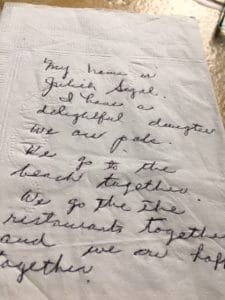 My name is
Judith Segal.
I have a
delightful daughter
We are pals.
We go to the
beach together.
We go the the
restaurants together
and we are happ
together.